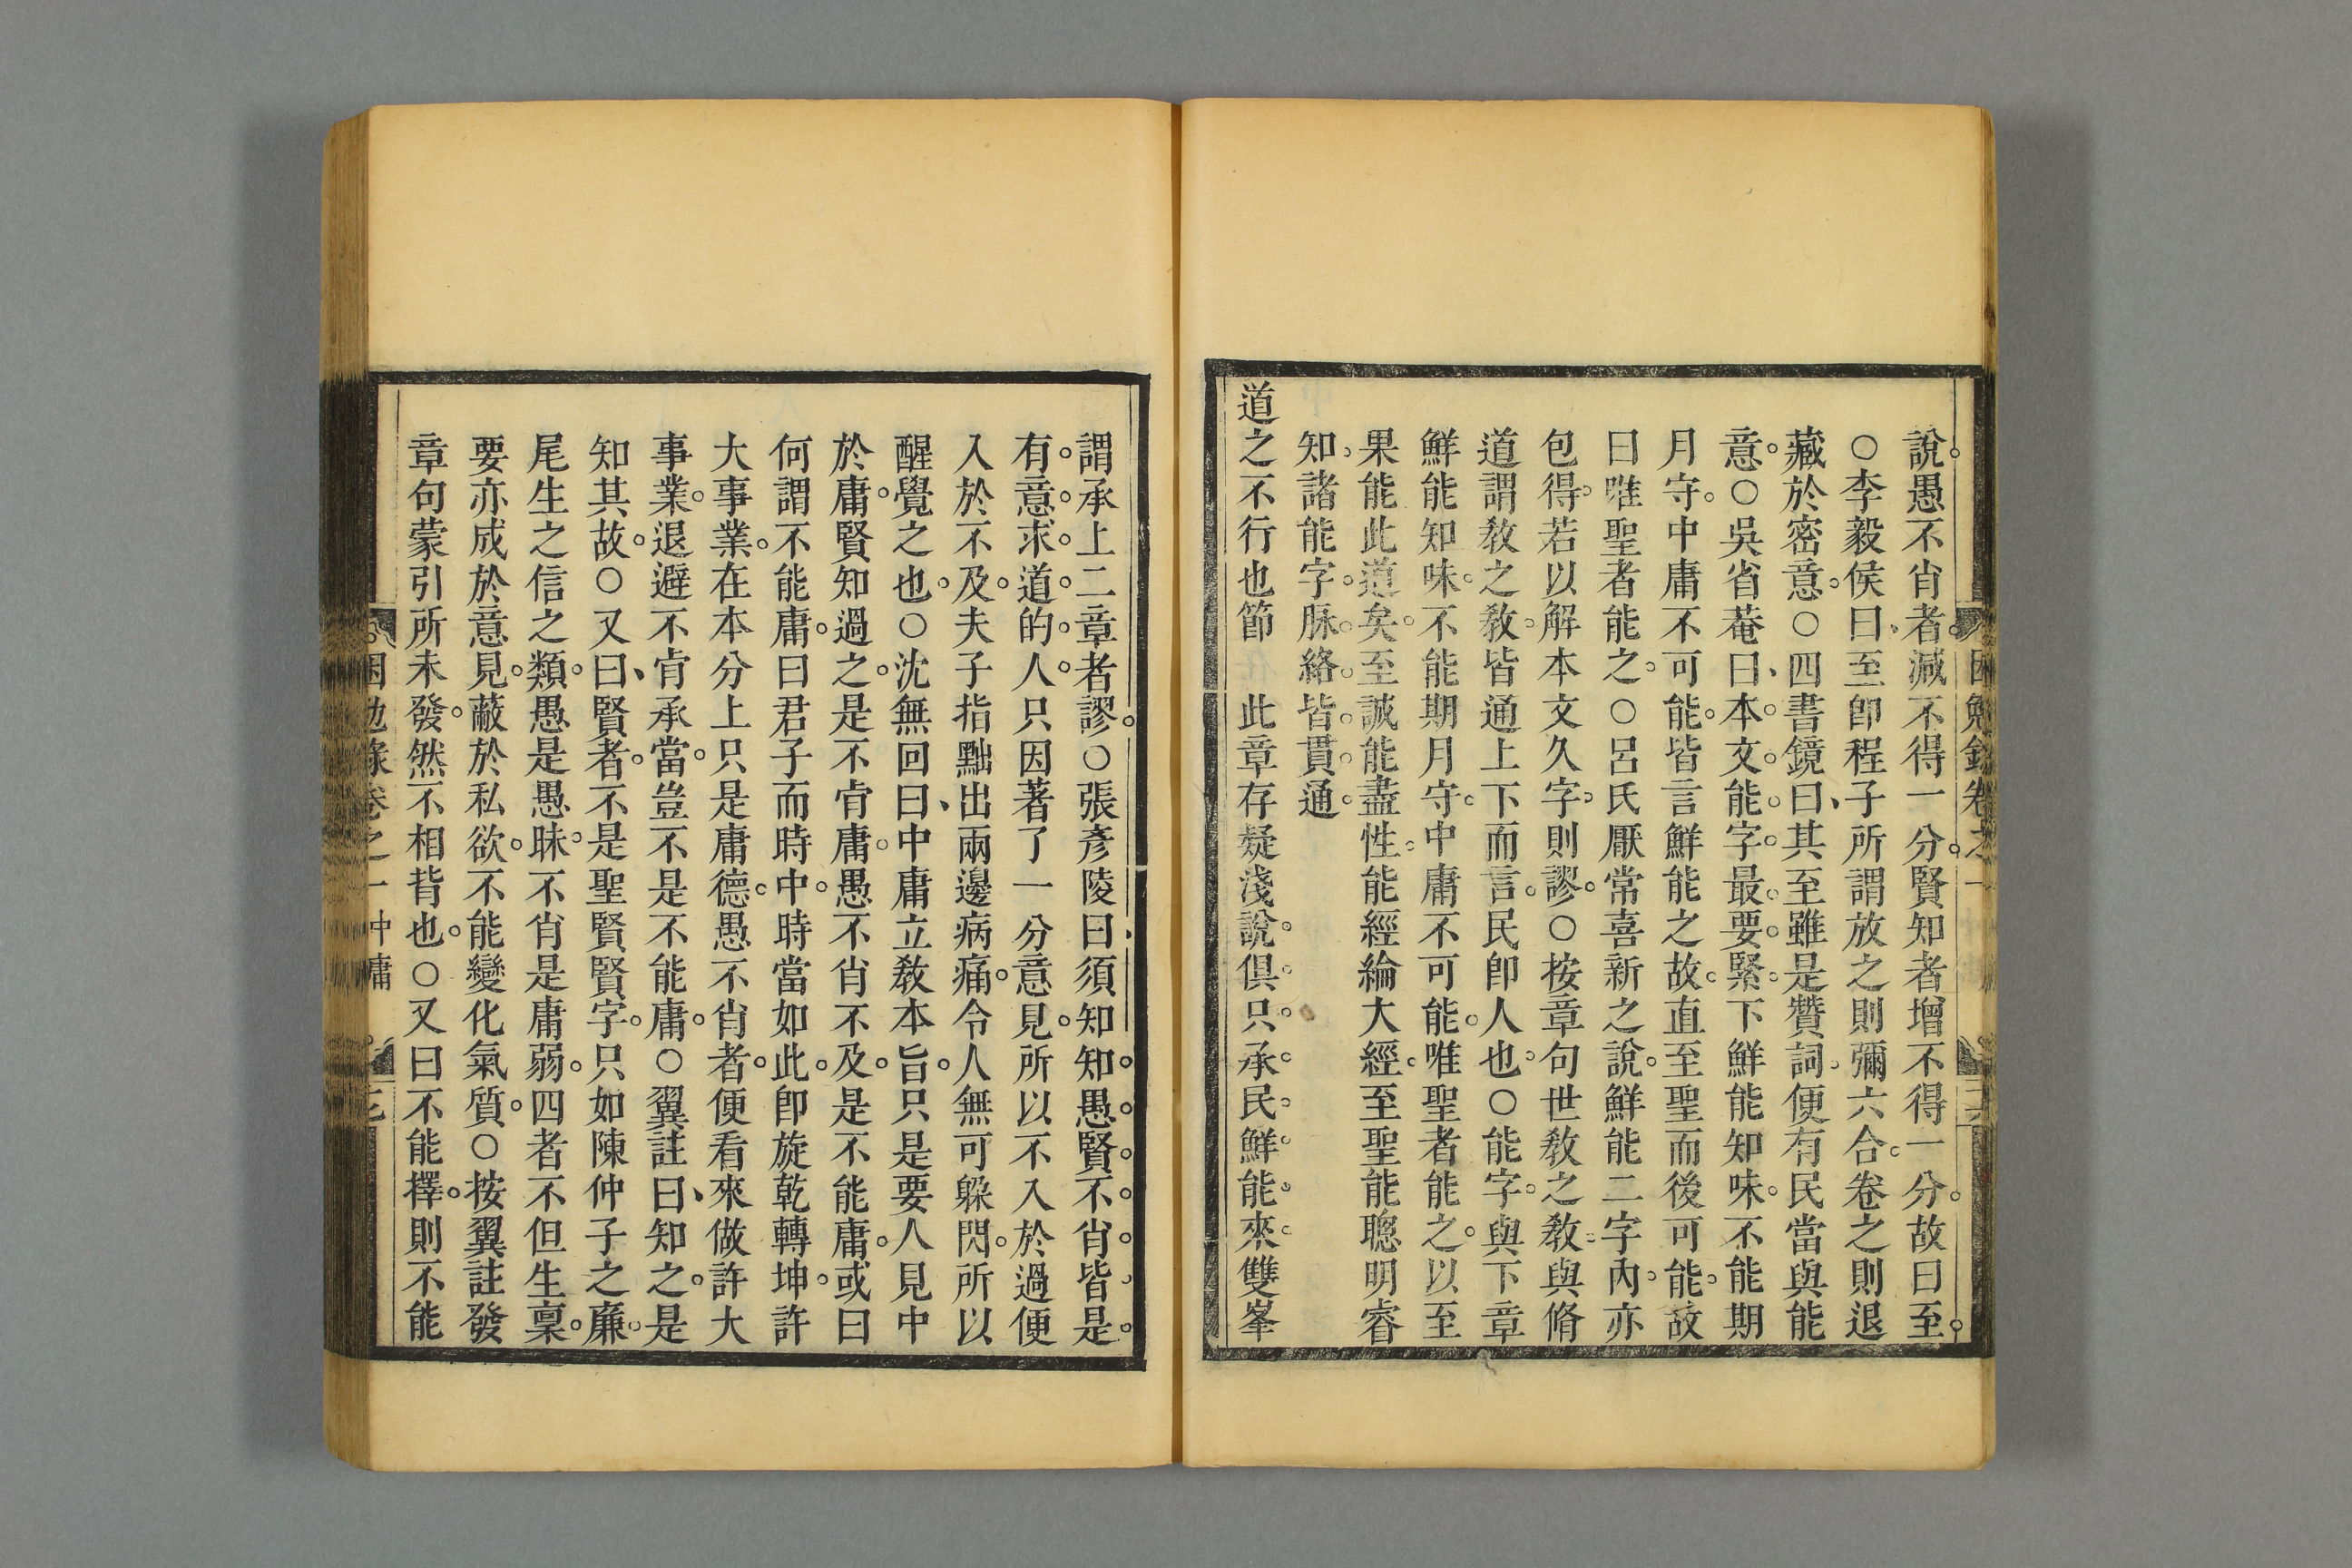 說愚不肖者減不得一分賢知者增不得一分故曰至
○李毅侯曰至卽程子所謂放之則彌六合卷之則退
藏於密意○四書鏡曰其至雖是贊詞便有民當與能
意○吳省菴曰本文能字最要緊下鮮能知味不能期
月守中庸不可能皆言鮮能之故直至聖而後可能故
曰唯聖者能之○呂氏厭常喜新之說鮮能二字內亦
包得若以解本文久字則謬○按章句世敎之敎與脩
道謂敎之敎皆通上下而言民卽人也○能字與下章
鮮能知味不能期月守中庸不可能唯聖者能之以至
果能此道矣至誠能盡性能經綸大經至聖能聰明睿
知諸能字脉絡皆貫通
道之不行也節 此章存疑淺說俱只承民鮮能來雙峯
謂承上二章者謬○張彥陵曰須知知愚賢不肖皆是
有意求道的人只因著了一分意見所以不入於過便
入於不及夫子指點出兩邊病痛令人無可躲閃所以
醒覺之也○沈無回曰中庸立敎本旨只是要人見中
於庸賢知過之是不肯庸愚不肖不及是不能庸或曰
何謂不能庸曰君子而時中時當如此卽旋乾轉坤許
大事業在本分上只是庸德愚不肖者便看來做許大
事業退避不肯承當豈不是不能庸○翼註曰知之是
知其故○又曰賢者不是聖賢賢字只如陳仲子之廉
尾生之信之類愚是愚昧不肖是庸弱四者不但生稟
要亦成於意見蔽於私欲不能變化氣質○按翼註發
章句蒙引所未發然不相背也○又曰不能擇則不能
困勉錄卷之一 中庸